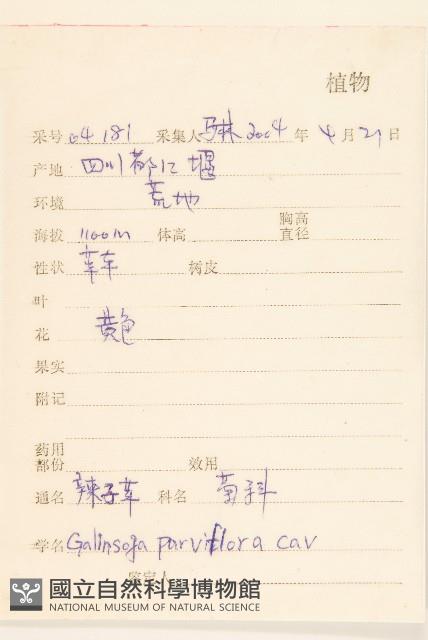 植物
采号 04181 采集人 马林 2004 年 4 月 21 日
产地 四川都江堰
环境 荒地
胸高
海拔 1100m 体高 直径
性状 草本 树皮
叶
花 黄色
果实
附记
药用
部份 效用
通名 辣子草 科名 菊科
学名 Galinsoga parviflora cav
鉴定人
國立自然科學博物館
NATIONAL MUSEUM OF NATURAL SCIENCE